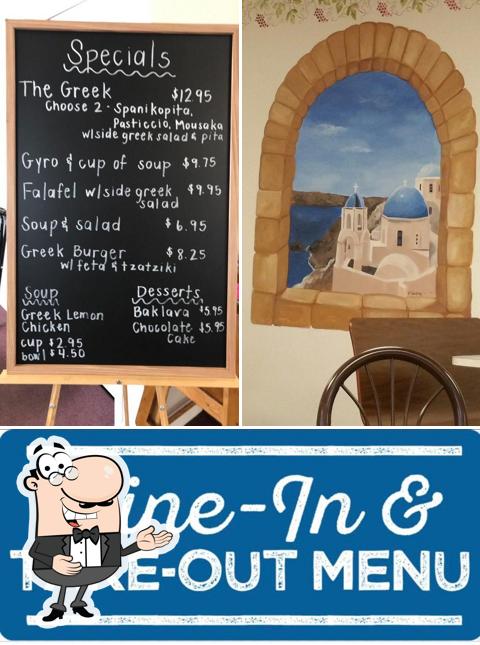 Specials
The Greek $12.95
Choose 2 - Spanikopita,
Pasticcio, Mousaka
w/side greek salad & pita
Gyro & cup of soup $9.75
Falafel w/side greek $9.95
salad
Soup & salad $6.95
Greek Burger $8.25
w/feta & tzatziki
Soup
Greek Lemon
Chicken
cup $2.95
bowl $4.50
Desserts
Baklava $5.95
Chocolate $5.95
Cake
ine-In &
T KE-OUT MENU